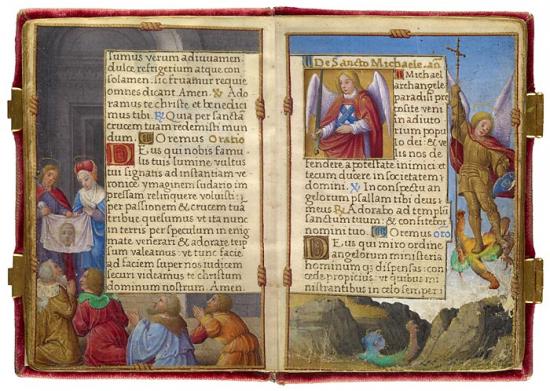 sumus verum adiuvamen.
dulce refrigerium atque con
solamen. sic fruamur requie
omnes dicant Amen. ℣ Ado
ramus te christe et benedici
mus tibi. ℟ Quia per sanctā
crucem tuam redemisti mun
dum. Oremus Oratio
DEus qui nobis famu
lis tuis lumine vultus
tui signatis ad instantiam ve
ronice ymaginem sudario im
pressam relinquere voluisti:
per passionem & crucem tua
tribue quesumus vt ita nunc
in terris per speculum in enig
mate venerari & adorare teip
sum valeamus: vt tunc facie
ad faciem super nos iudicem
securi videamus te christum
dominum nostrum. Amen.
De Sancto Michaele. añ
Michael
archangele
paradisi pre
posite veni
in adiuto
rium popu
lo dei: & ve
lis nos de
fendere a potestate inimici et
tecum ducere in societatem
domini. ℣ In conspectu an
gelorum psallam tibi deus
meus ℟ Adorabo ad templū
sanctum tuum: & confitebor
nomini tuo. Oremus oro
DEus qui miro ordine
angelorum ministeria
hominum dispensas: con
cede propicius vt quibus mi
nistrantibus in celo semper